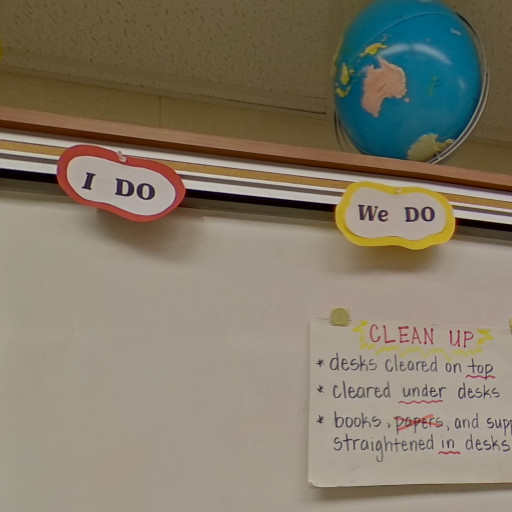 I DO
We DO
CLEAN UP
* desks cleared on top
* cleared under desks
* books, papers, and
straightened in desks